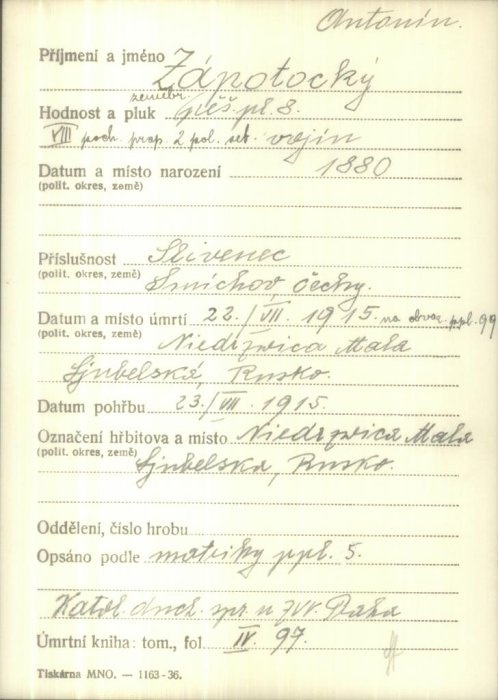 Antonín.
Příjmení a jméno Zápotocký
zeměbr.
Hodnost a pluk pěš. pl. 8.
VIII poch. prap. 2 pol. set. vojín
Datum a místo narození 1880
(polit. okres, země)
Příslušnost Slivenec
(polit. okres, země) Smíchov Čechy.
Datum a místo úmrtí 22./VII. 1915. na obvaz. ppl. 99
(polit. okres, země) Niedrzwica Mala
Ljubelská, Rusko.
Datum pohřbu 23./VII. 1915.
Označení hřbitova a místo Niedrzwica Mala
(polit. okres, země) Ljubelska, Rusko.
Oddělení, číslo hrobu
Opsáno podle matriky ppl. 5.
Katol. duch. spr. u ZVV. Praha
Úmrtní kniha: tom., fol. IV. 97.
Tiskárna MNO. — 1163-36.